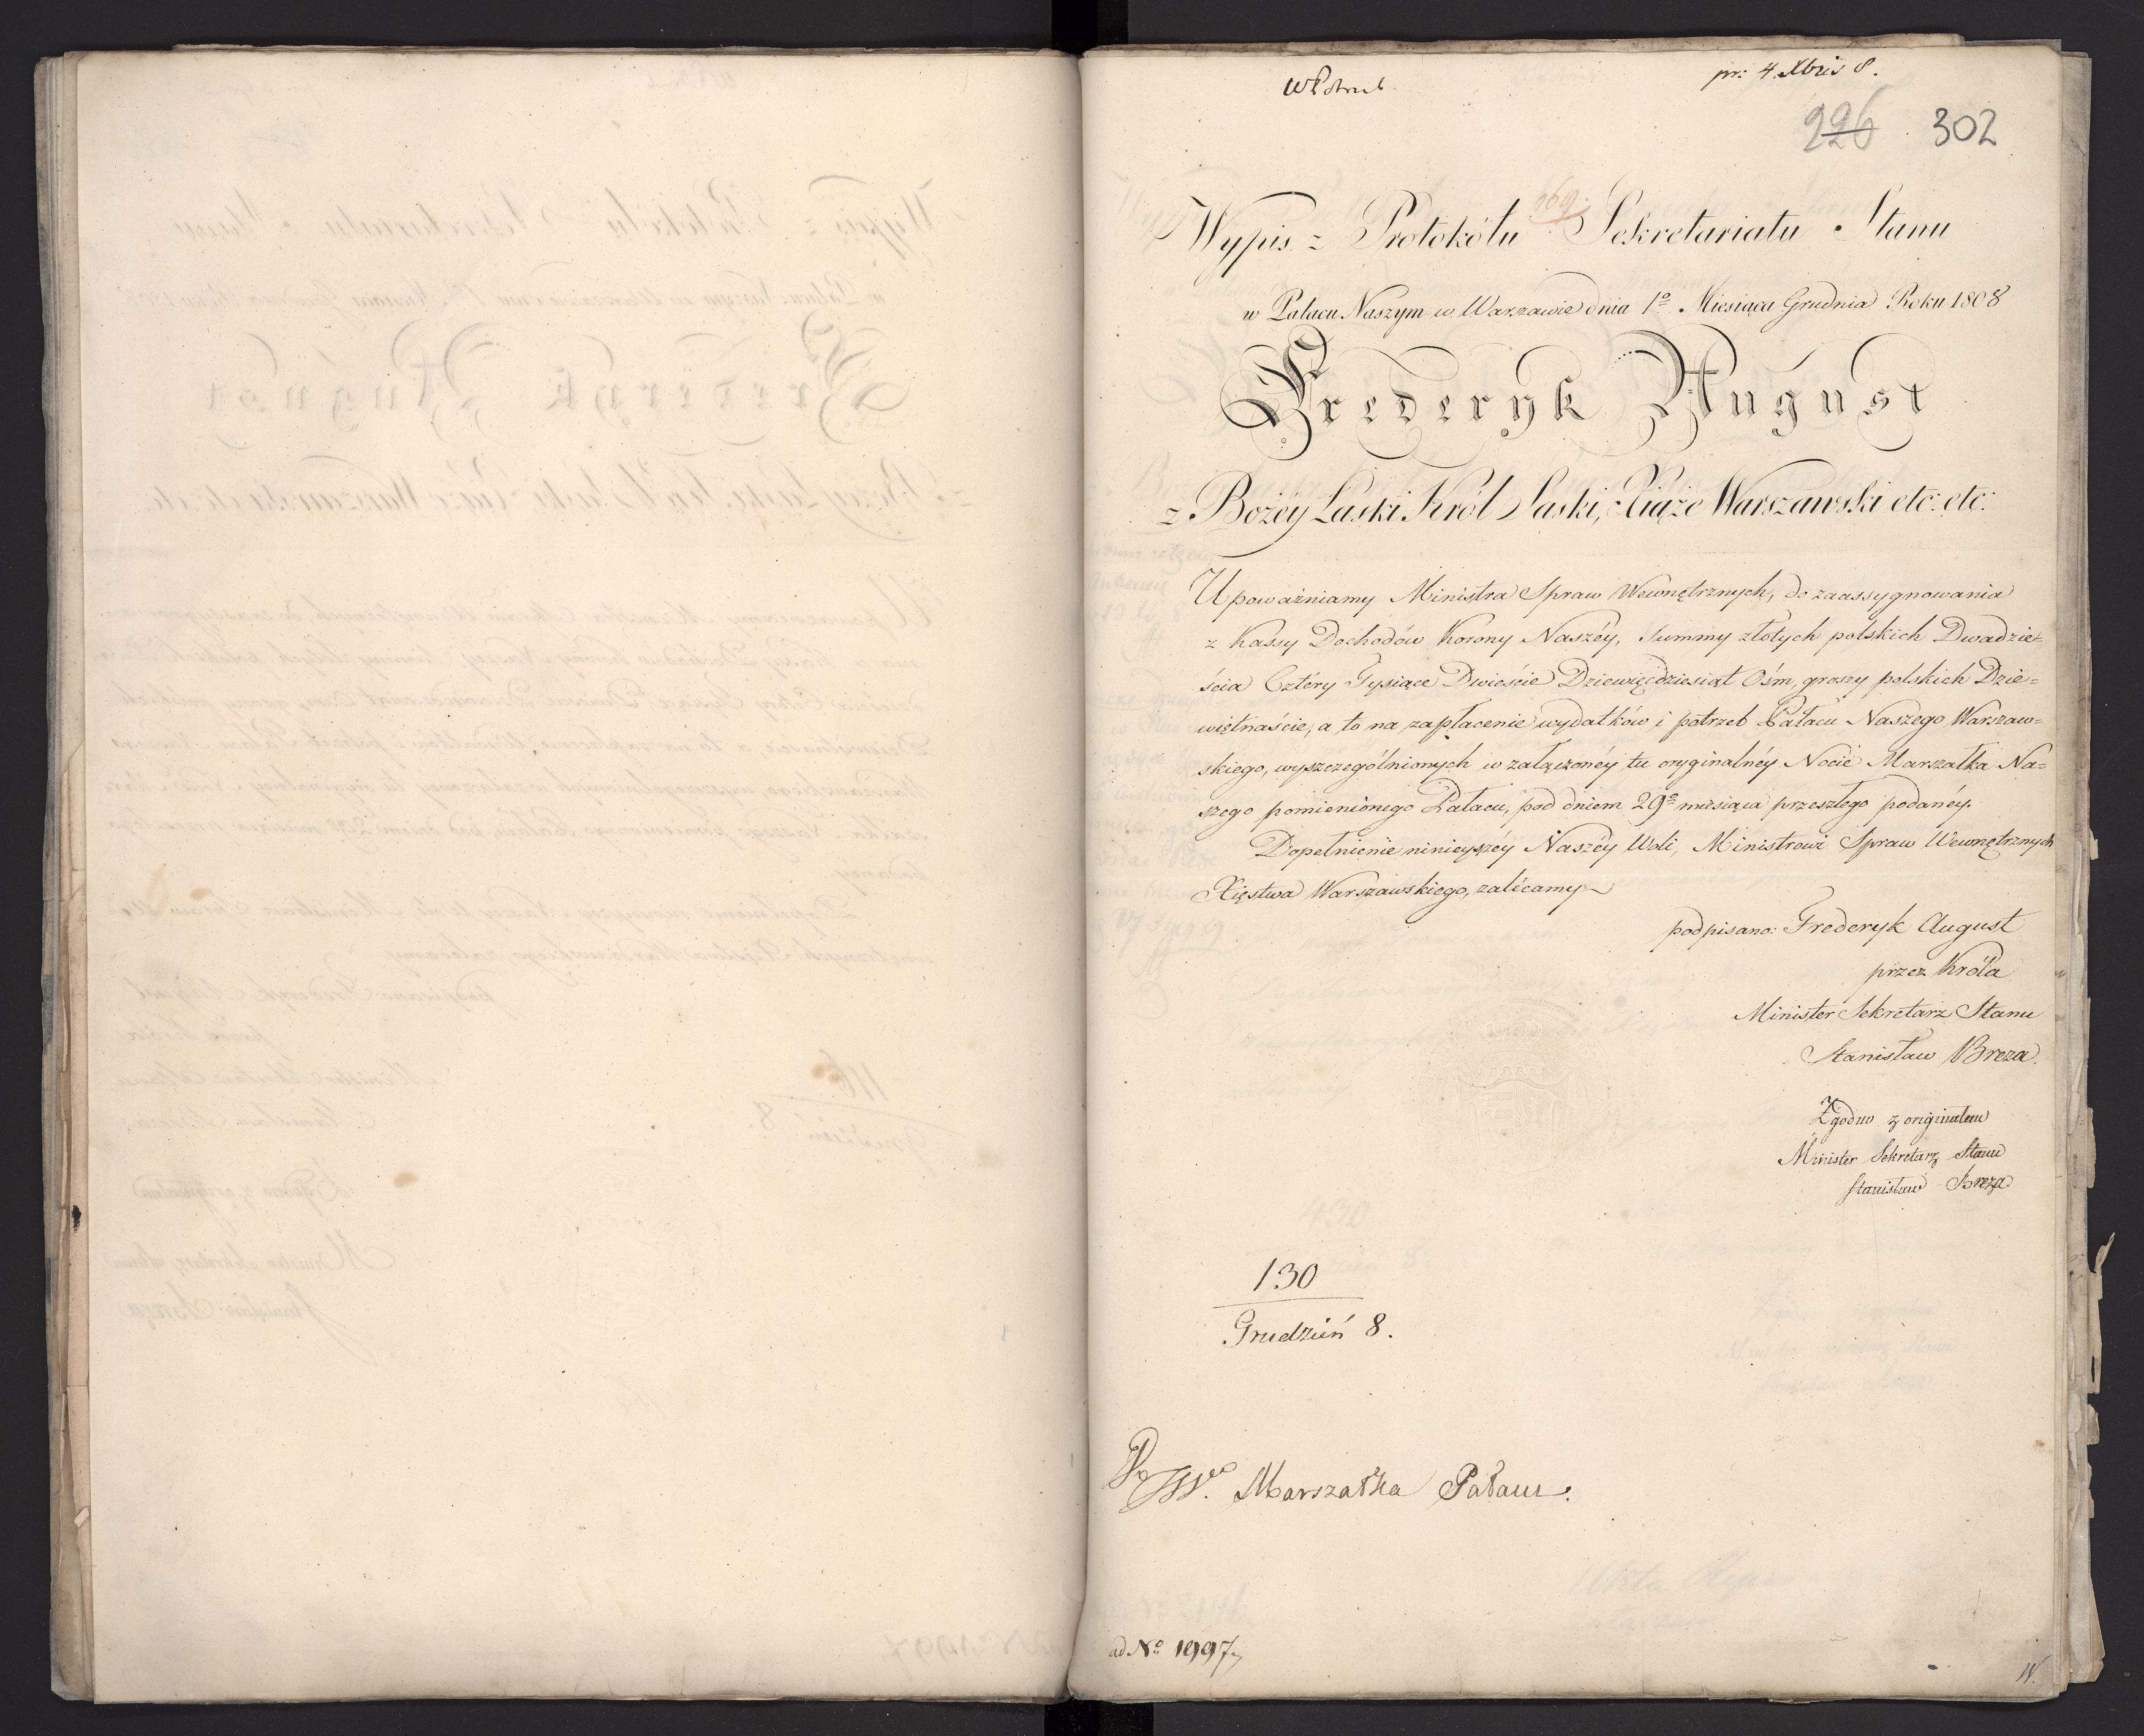 pr: 4 Xbris 8.
226 302
169.
Wypis z Protokółu Sekretariatu Stanu
w Pałacu Naszym w Warszawie dnia 1º Miesiąca Grudnia Roku 1808
Frederyk August
z Bożéy Łaski Król Saski, Xiąże Warszawski etc: etc:
Upoważniamy Ministra Spraw Wewnętrznych, do zaassygnowania
z Kassy Dochodów Korony Naszéy, Summy złotych polskich Dwadzie=
ścia Cztéry Tysiące Dwieście Dziewięćdziesiąt Ośm, groszy polskich Dzie=
więtnaście, a to na zapłacenie wydatków i potrzeb Pałacu Naszego Warszaw=
skiego, wyszczególnionych w załączonéy tu oryginalnéy Nocie Marszałka Na=
szego pomienionego Pałacu, pod dniem 29º miesiąca przeszłego podanéy.
Dopełnienie ninieyszéy Naszéy Woli, Ministrowi Spraw Wewnętrznych
Xięstwa Warszawskiego, zalécamy
podpisano: Frederyk August
przez Króla
Minister Sekretarz Stanu
Stanisław Breza.
Zgodno z originałem
Minister Sekretarz Stanu
Stanisław Breza
130
Grudzień 8.
Do JW. Marszałka Pałacu.
ad Nº 1997